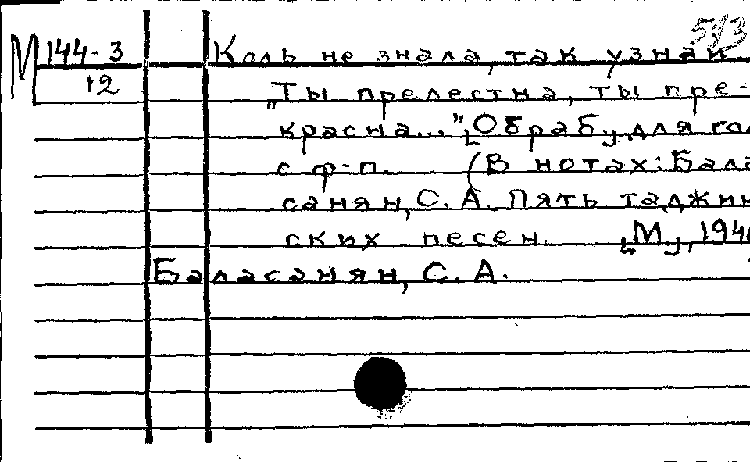 513
М 144-3 Коль не знала, так узнай
12 „Ты прелестна, ты пре-
красна...“ [Обраб.] для гол
с ф-п. (В нотах: Бала
санян, С. А. Пять таджик
ских песен. [М.], 194
Баласанян, С. А.